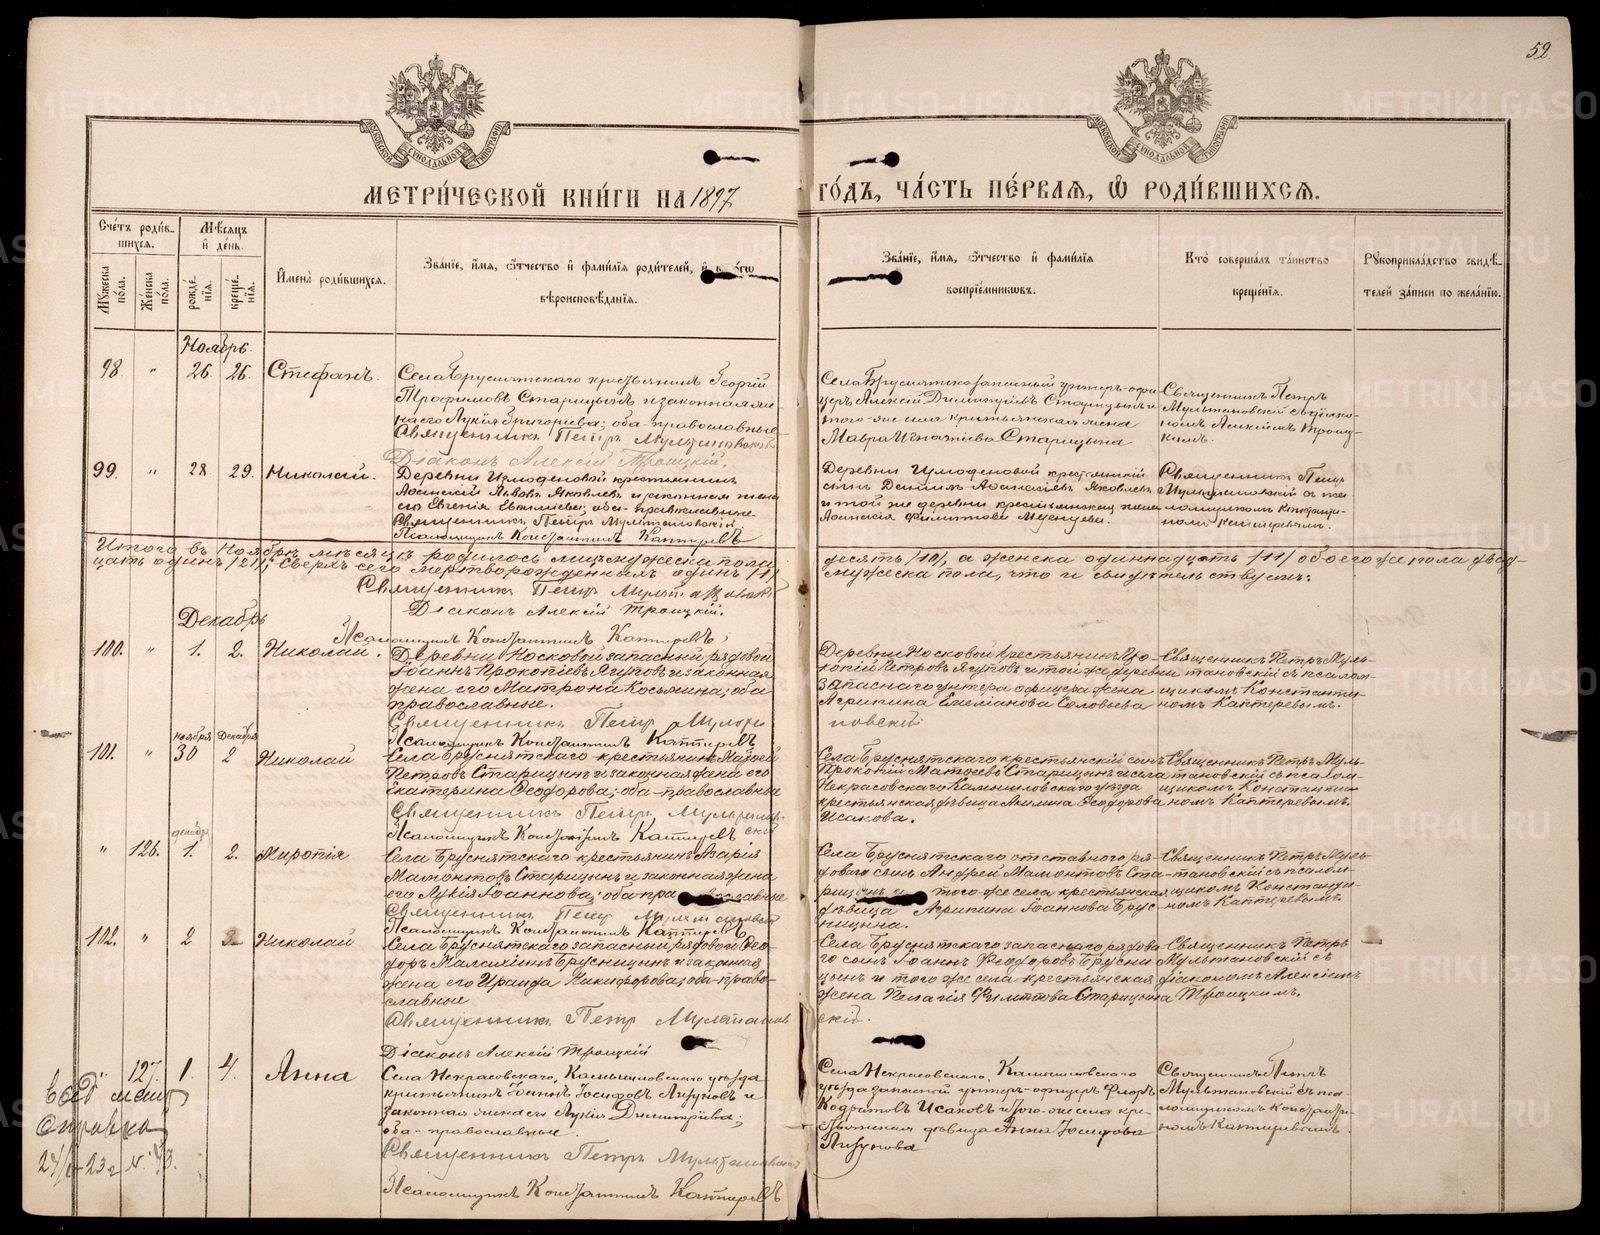 52
МЕТРИ́ЧЕСКОЙ КНИ́ГИ НА 1897 ГО́ДЪ, ЧА́СТЬ ПЕ́РВАѦ, Ѡ РОДИ́ВШИХСѦ.
Сче́тъ роди́в-
шихся.
Мѣ́сяцъ
и де́нь.
Му́жеска по́ла.
Же́нска по́ла.
рожде́-
нїѧ.
креще́-
нїѧ.
Имена̀ роди́вшихсѧ.
Зва́нїе, и́мѧ, ѻ́тчество и фамѝлїѧ роди́телей, и
вѣроисповѣ́данїѧ.
Зва́нїе, и́мѧ, ѻ́тчество и фамѝлїѧ
воспрїе́мниковъ.
Кто̀ соверша́лъ та́инство
креще́нїѧ.
Рꙋкоприкла́дство свидѣ́-
телей за́писи по жела́нїю.
Ноябрь.
98. " 26. 26. Стефанъ.
Села Бруснятскаго крестьянинъ Георгій
Трофимовъ Старицынъ и законная же-
на его Лукія Григорьева; оба православные
Священникъ Петръ Мультановскій
Діаконъ Алексій Троицкій.
Села Бруснятско запасный унтеръ-офи-
церъ Алексій Димитріевъ Старицынъ и
того-же села крестьянская жена
Мавра Игнатіева Старицына
Священникъ Петръ
Мультановскій съ діако-
номъ Алексіемъ Троиц-
кимъ.
99. " 28 29. Николай.
Деревни крестьянинъ
Львовъ Яковлевъ и законная жена
его Евгенія оба православные
Священникъ Петръ Мультановскій
Псаломщикъ Константинъ Каптеревъ
Деревни крестьянскій
сынъ Даніилъ Яковлевъ
и той же деревни крестьянская жена
Священникъ Петръ
Мультановскій съ пса-
ломщикомъ Константи-
номъ Каптеревымъ.
Итого въ Ноябрѣ мѣсяцѣ родилось мужеска пола десять /10/, а женска одиннадцать /11/ обоего же пола двад-
цать одинъ /21/, сверхъ сего мертворожденныхъ одинъ /1/ мужеска пола, что и свидѣтельствуемъ:
Священникъ Петръ Мультановскій
Діаконъ Алексій Троицкій.
Псаломщикъ Константинъ Каптеревъ
Декабрь
100. " 1. 2. Николай.
Деревни Носковой запасный рядовой
Іоаннъ Прокопіевъ Ягуповъ и законная
жена его Матрона Косьмина; оба
православные.
Священникъ Петръ Мульта-
новскій
Псаломщикъ Константинъ Каптеревъ
Деревни Носковой крестьянинъ Про-
копій Петровъ Ягуповъ и той же деревни
запаснаго унтеръ офицера жена
Агрипина Емеліанова Соловьева
Священникъ Петръ Муль-
тановскій съ псалом-
щикомъ Константи-
номъ Каптеревымъ.
ноября Декабря
101. " 30 2 Николай
Села Бруснятскаго крестьянинъ Матѳей
Петровъ Старицынъ и законная жена его
Екатерина Ѳеодорова; оба православные
Священникъ Петръ Мультанов-
скій
Псаломщикъ Константинъ Каптеревъ
Села Бруснятскаго крестьянскій сынъ
Прокопій Матѳеевъ Старицынъ и села
Некрасовскаго Камышловскаго уѣзда
крестьянская дѣвица Акилина Ѳеодорова
Исакова.
Священникъ Петръ Муль-
тановскій съ псалом-
щикомъ Константи-
номъ Каптеревымъ.
декабрь
" 126. 1. 2. Миропія
Села Бруснятскаго крестьянинъ Азарія
Мамонтовъ Старицынъ и законная жена
его Лукія Іоаннова; оба православные
Священникъ Петръ Мультановскій
Псаломщикъ Константинъ Каптеревъ
Села Бруснятскаго отставного ря-
доваго сынъ Андрей Мамонтовъ Ста-
рицынъ и того-же села крестьянская
дѣвица Агрипина Іоаннова Брус-
ницына.
Священникъ Петръ Муль-
тановскій съ псалом-
щикомъ Константи-
номъ Каптеревымъ.
102. " 2 3 Николай
Села Бруснятскаго запасный рядовой Ѳео-
доръ Брусницынъ и законная
жена его Ираида Никифорова; оба право-
славные
Священникъ Петръ Мультанов-
скій.
Діаконъ Алексій Троицкій
Села Бруснятскаго запаснаго рядова-
го сынъ Іоаннъ Ѳеодоровъ Брусни-
цынъ и того же села крестьянская
жена Пелагія Филиппова Старицына
Священникъ Петръ
Мультановскій съ
діакономъ Алексіемъ
Троицкимъ.
" 127. 1. 4. Анна
Села Некрасовскаго, Камышловскаго уѣзда
крестьянинъ Іоаннъ Іосифовъ Лизуновъ и
законная жена его Лукія Димитріева;
оба православные.
Священникъ Петръ Мультановскій
Псаломщикъ Константинъ Каптеревъ
Села Некрасовскаго, Камышловскаго
уѣзда запасный унтеръ-офицеръ
Кодратовъ Исаковъ и того-же села кре-
стьянская дѣвица Анна Іосифова
Лизунова
Священникъ Петръ
Мультановскій съ пса-
ломщикомъ Константи-
номъ Каптеревымъ.
справка